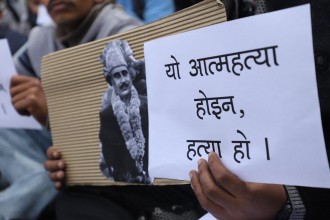 यो आत्महत्या
होइन,
हत्या हो ।